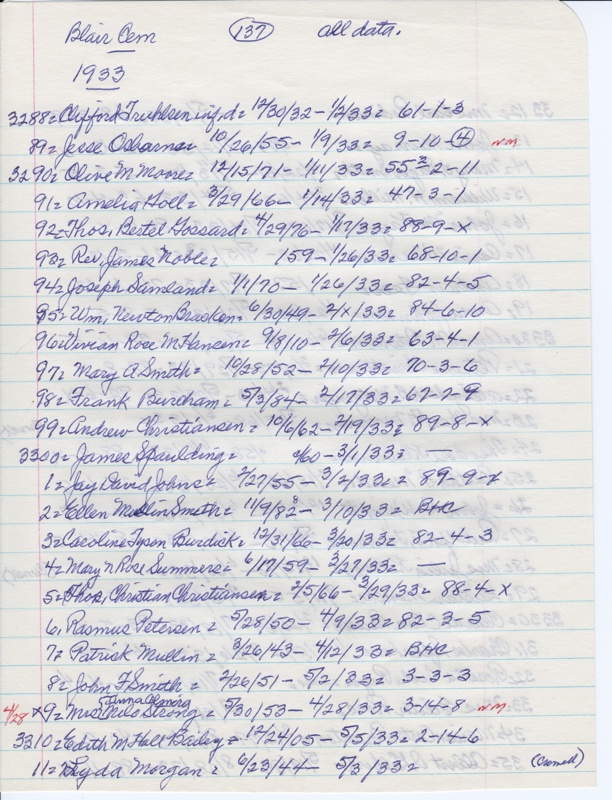 Blair Cem 137 all data.
1933
3288= Clifford Truhlsen inf, d= 12/30/32 - 1/2/33= 61-1-3
89= Jesse Osborne= 10/26/55 - 1/9/33= 9-10-4 n.m.
3290= Olive M Moore= 12/15/71 - 1/11/33= 55-2-11
91= Amelia Holl= 3/29/66 - 1/14/33= 47-3-1
92= Thos, Bertel Gossard= 4/29/76 - 1/17/33= 88-9-x
93= Rev, James Noble= -159 - 1/26/33= 68-10-1
94= Joseph Samland= 7/1/70 - 1/26/33= 82-4-5
95= Wm, Newton Bracken= 6/30/49 - 2/x/33= 84-6-10
96= Vivian Rose M Hansen= 9/8/10 - 2/6/33= 63-4-1
97= Mary A Smith= 10/28/52 - 2/10/33= 70-3-6
98= Frank Burcham= 5/3/84 - 2/17/33=
99= Andrew Christiansen= 10/6/62 - 2/19/33= 89-8-x
3300= James Spaulding= c/60 - 3/1/33= —
1= Jay David Johns= 2/27/55 - 3/2/33= 89-9-x
2= Ellen Mullin Smith= 11/9/82 - 3/10/33= BHC
3= Caroline Tyson Burdick= 12/31/66 - 3/20/33= 82-4-3
4= Mary N Rose Summers= 6/17/59 - 3/27/33= —
5= Thos, Christian Christiansen= 2/5/66 - 3/29/33= 88-4-x
6, Rasmus Petersen= 5/28/50 - 4/9/33= 82-3-5
7= Patrick Mullin= 3/26/43 - 4/12/33= BHC
8= John F Smith= 2/26/51 - 5/2/33= 3-3-3
4/28 x9= Mrs Milo Strong= 5/30/53 - 4/28/33= 3-14-8 n.m.
3310= Edith M Hall Bailey= 12/24/05 - 5/5/33= 2-14-6
11= Lyda Morgan= 6/23/44 - 5/3/33=